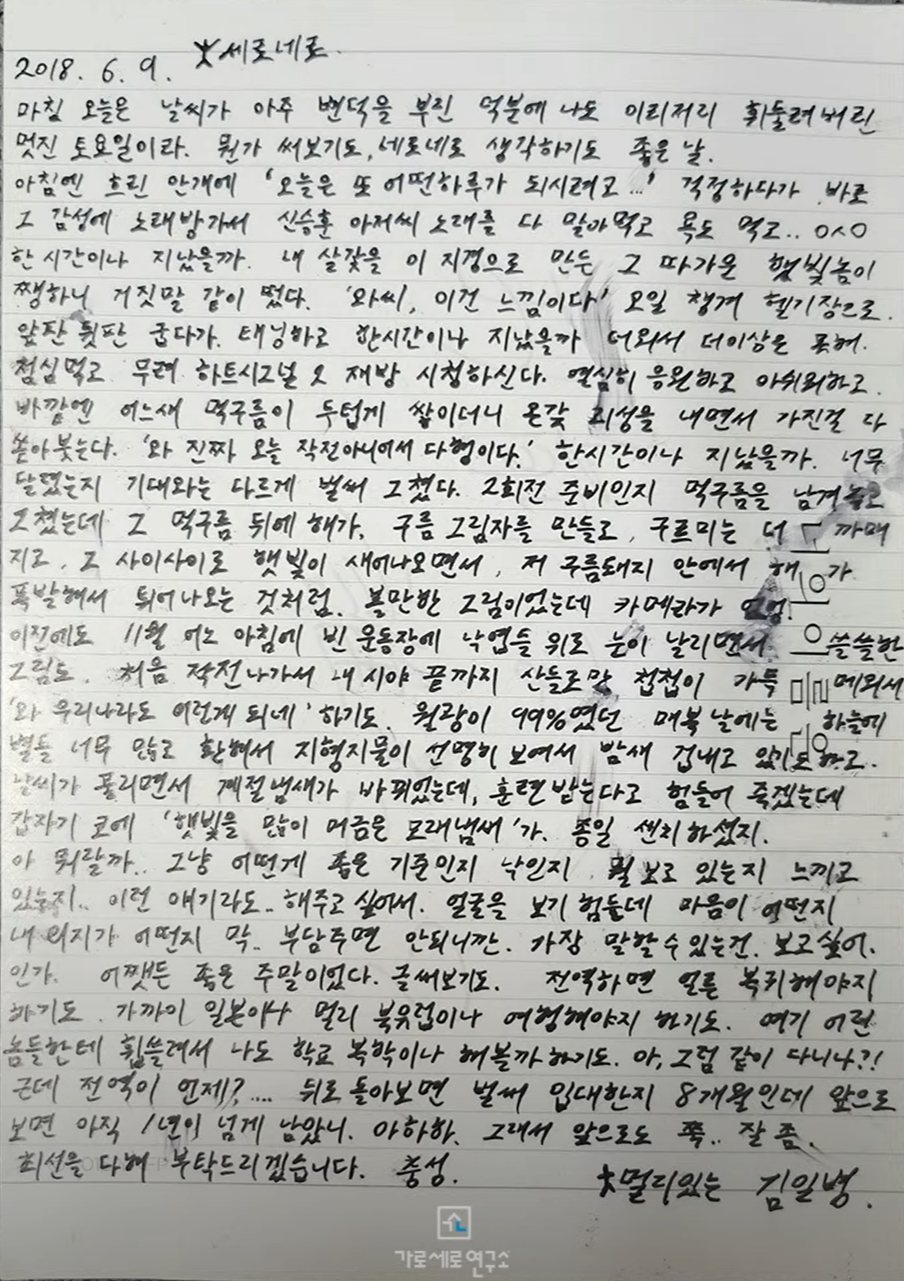 2018. 6. 9. 세로네로.
마침 오늘은 날씨가 아주 변덕을 부린 덕분에 나도 이리저리 휘둘려버린
멋진 토요일이라. 뭔가 써보기도, 네로네로 생각하기도 좋은 날.
아침엔 흐린 안개에 '오늘은 또 어떤하루가 되시려고...' 걱정하다가 바로
그 감성에 노래방가서 신승훈 아저씨 노래를 다 말아먹고 욕도 먹고.. ㅇㅅㅇ
한시간이나 지났을까. 내 살갗을 이 지경으로 만든 그 따가운 햇빛놈이
쨍하니 거짓말 같이 떴다. '와씨, 이건 느낌이다' 오일 챙겨 헬기장으로.
앞판 뒷판 굽다가. 태닝하고 한시간이나 지났을까 더워서 더이상은 못해.
점심먹고 무려 하트시그널 2 재방 시청하신다. 열심히 응원하고 아쉬워하고.
바깥엔 어느새 먹구름이 두텁게 쌓이더니 온갖 괴성을 내면서 가진걸 다
쏟아붓는다. '와 진짜 오늘 작전아니어서 다행이다.' 한시간이나 지났을까. 너무
달렸는지 기대와는 다르게 벌써 그쳤다. 2회전 준비인지 먹구름을 남겨놓고
그쳤는데 그 먹구름 뒤에 해가, 구름 그림자를 만들고, 구르미는 더 까매
지고, 그 사이사이로 햇빛이 새어나오면서, 저 구름돼지 안에서 해가
폭발해서 튀어나오는 것처럼. 볼만한 그림이었는데 카메라가
이전에도 11월 어느 아침에 빈 운동장에 낙엽들 위로 눈이 날리면서 쓸쓸한
그림도. 처음 작전나가서 내 시야 끝까지 산들로만 첩첩이 가득 메워서
'와 우리나라도 이런게 되네' 하기도. 월광이 99%였던 매복날에는 하늘에
별들 너무 많고 환해서 지형지물이 선명히 보여서 밤새 겁내고 있기도하고..
날씨가 풀리면서 계절냄새가 바뀌었는데, 훈련받는다고 힘들어 죽겠는데
갑자기 코에 '햇빛을 많이 머금은 모래냄새'가. 종일 센치하셨지.
아 뭐랄까.. 그냥 어떤게 좋은 기준인지 낙인지 뭘 보고 있는지 느끼고
있는지.. 이런 얘기라도.. 해주고 싶어서. 얼굴을 보기 힘든데 마음이 어떤지
내 의지가 어떤지 막.. 부담주면 안되니깐. 가장 말할수있는건. 보고싶어.
인가. 어쨋든 좋은 주말이었다. 글써보기도. 전역하면 얼른 복귀해야지
하기도. 가까이 일본이나 멀리 북유럽이나 여행해야지 하기도. 여기 어린
놈들한테 휩쓸려서 나도 학교 복학이나 해볼까하기도. 아, 그럼 같이 다니나?!
근데 전역이 언제?.... 뒤로 돌아보면 벌써 입대한지 8개월인데 앞으로
보면 아직 1년이 넘게 남았니. 아하하. 그래서 앞으로도 쭉.. 잘 좀.
최선을 다해 부탁드리겠습니다. 충성.
멀리있는 김일병.
가로세로연구소